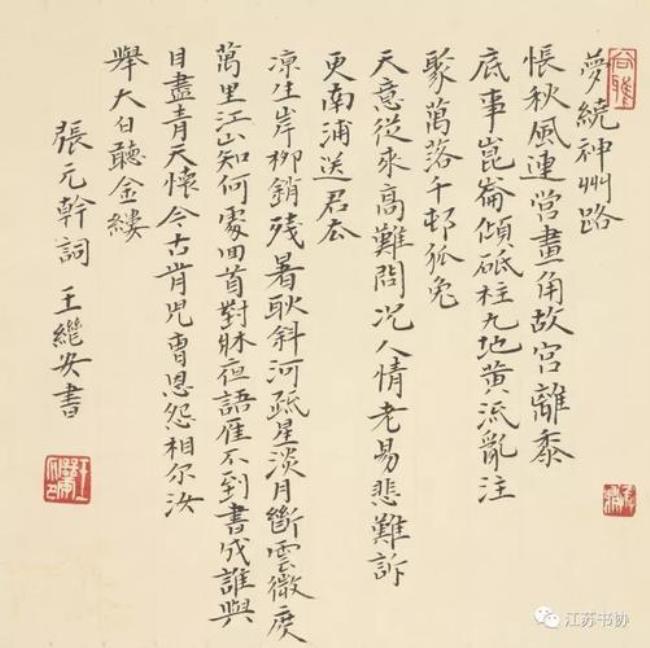 夢繞神州路
悵秋風連營畫角故宮離黍
底事崑崙傾砥柱九地黄流亂注
聚萬落千邨狐兔
天意從來高難問況人情老易悲難訴
更南浦送君去
凉生岸柳銷残暑耿斜河疏星淡月斷雲微度
萬里江山知何處回首對牀夜語雁不到書成誰與
目盡青天懷今古肯兒曹恩怨相尔汝
舉大白聽金縷
張元幹詞 王繼安書
江苏书协